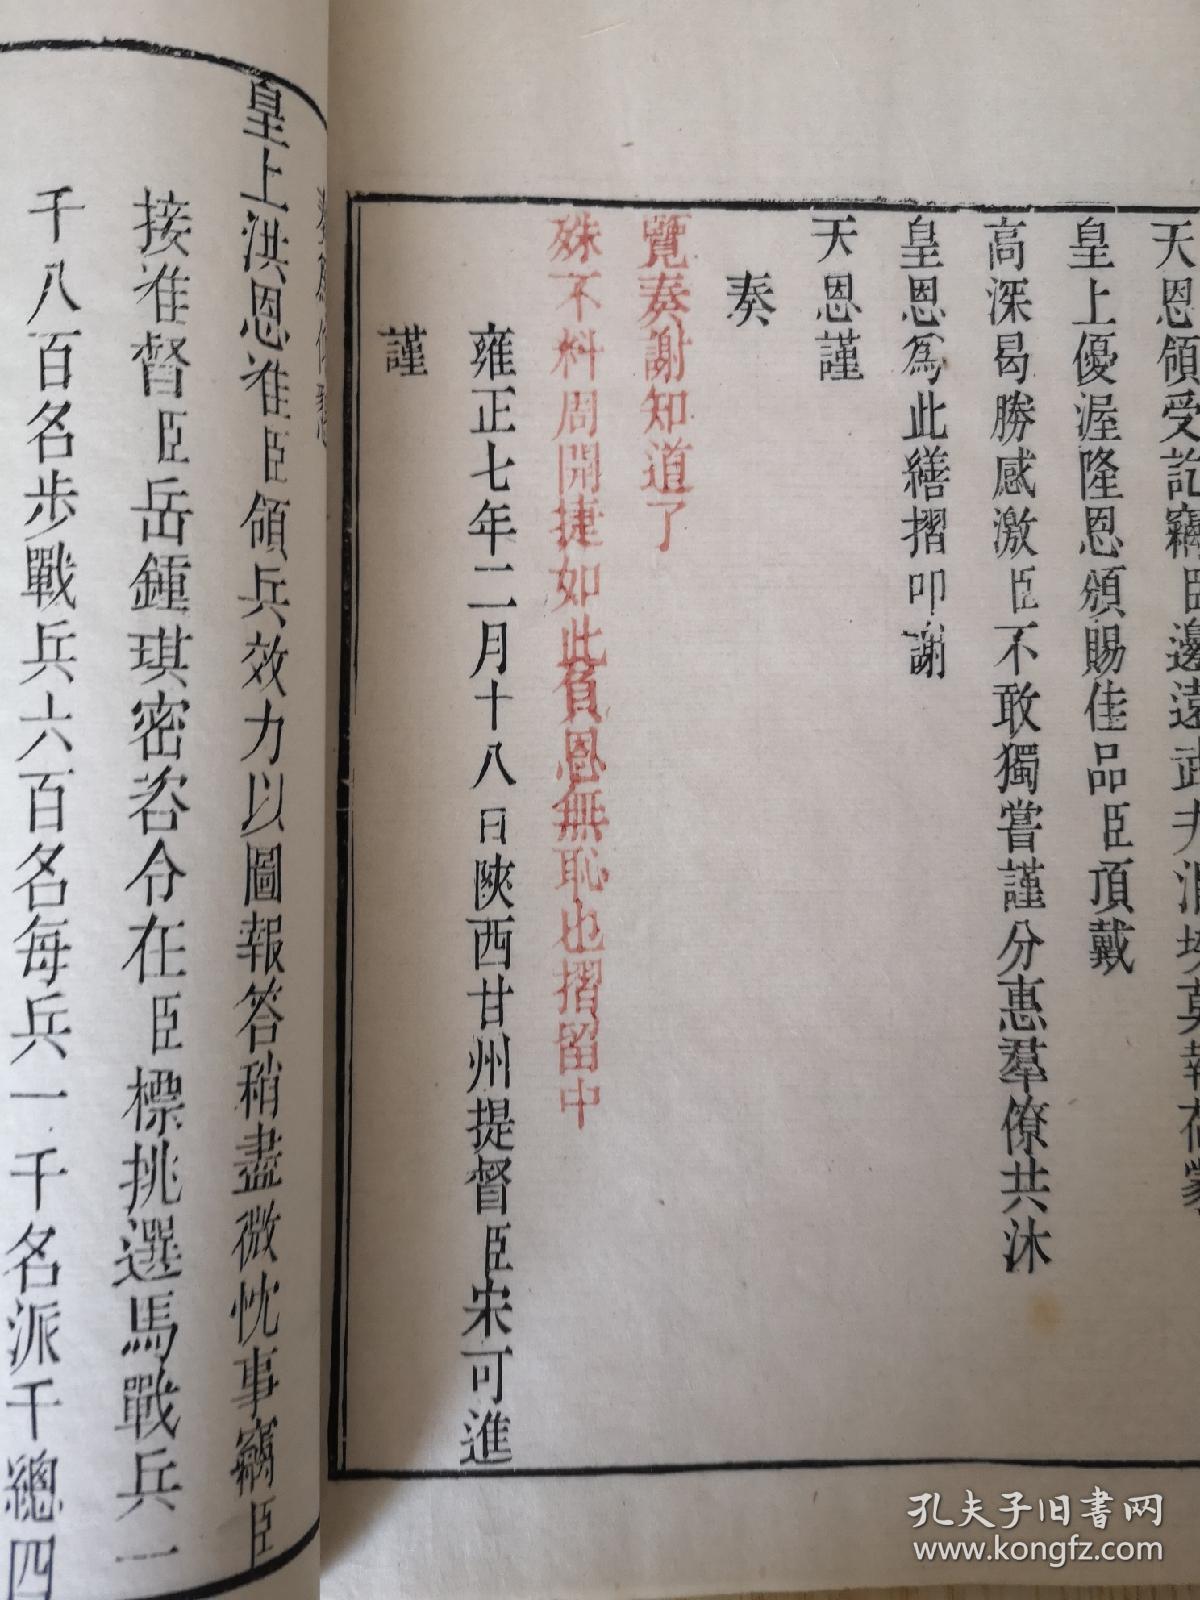 天恩領受訖竊臣邊遠武夫涓埃莫報荷蒙
皇上優渥隆恩頒賜佳品臣頂戴
高深曷勝感激臣不敢獨嘗謹分惠羣僚共沐
皇恩爲此繕摺叩謝
天恩謹
奏
覽奏謝知道了
殊不料周開捷如此負恩無恥也摺留中
雍正七年二月十八日陝西甘州提督臣宋可進
謹
皇上洪恩准臣領兵效力以圖報答稍盡微忱事竊臣
接准督臣岳鍾琪密咨令在臣標挑選馬戰兵一
千八百名步戰兵六百名每兵一千名派千總四
孔夫子旧书网
www.kongfz.com